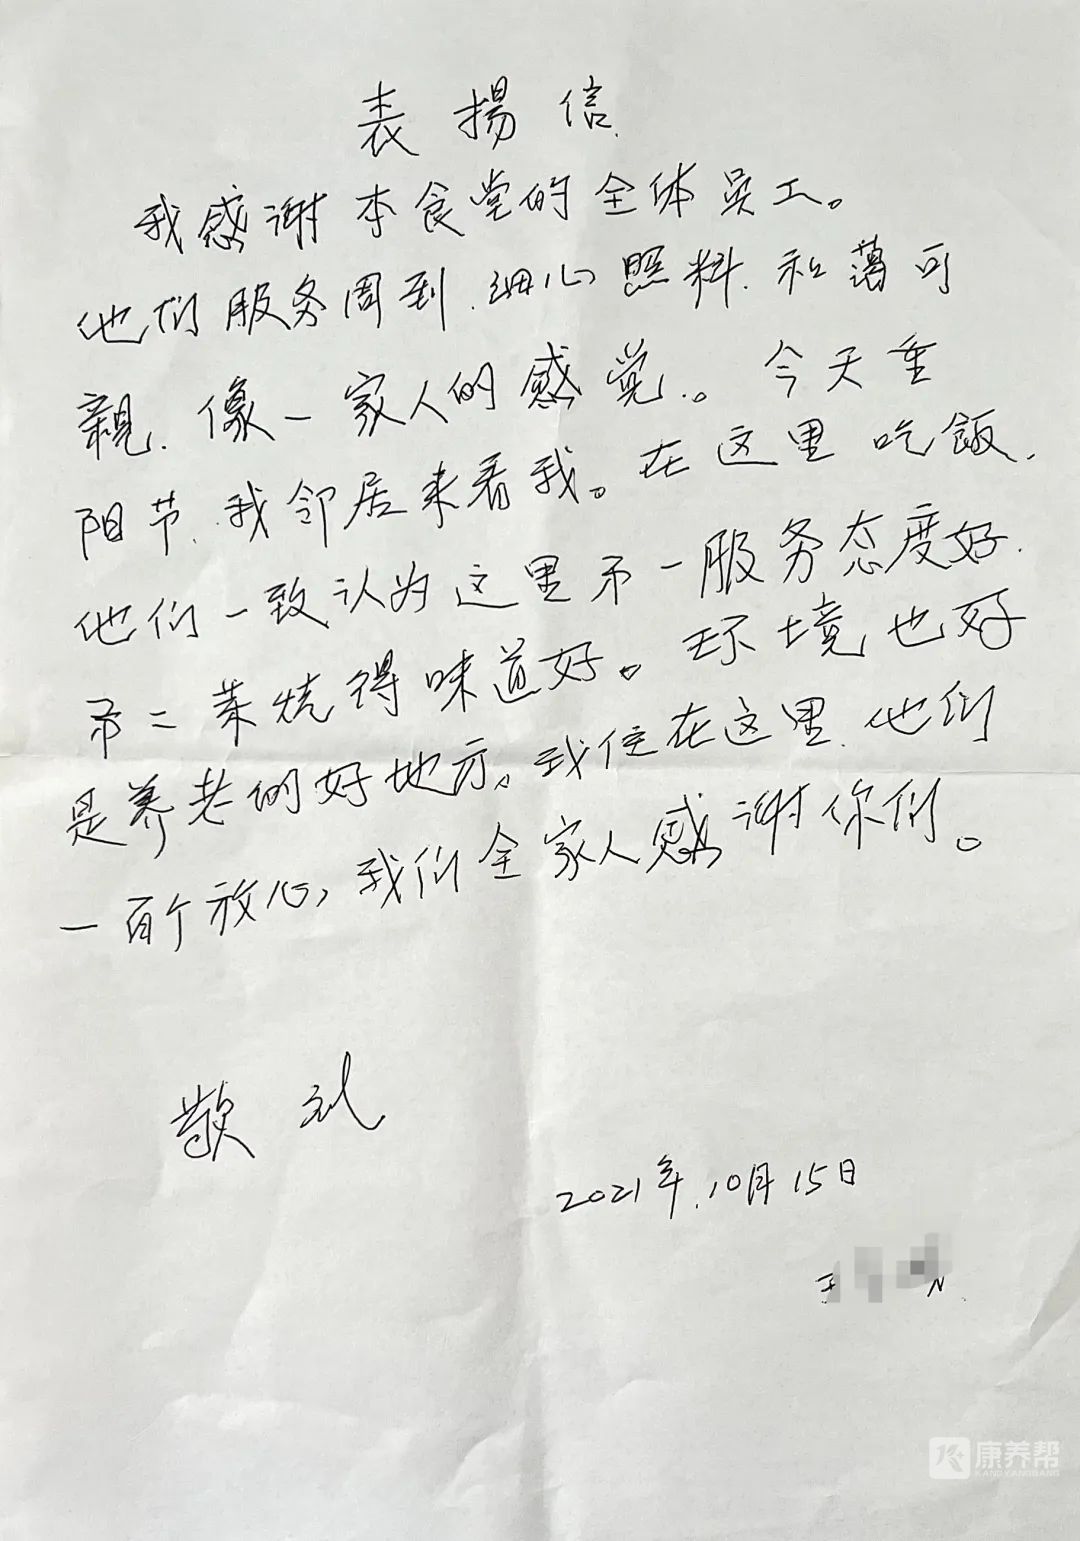 表揚信
我感谢本食堂的全体员工。
他们服务周到.细心照料.和蔼可
親.像一家人的感觉.。今天重
阳节.我邻居来看我。在这里吃飯.
他们一致认为这里㐧一服务态度好.
㐧二菜烧得味道好。环境也好
是养老的好地方。我住在这里.他们
一百个放心,我们全家人感谢你们。
敬礼
2021年.10月15日
康养帮
KANGYANGBANG